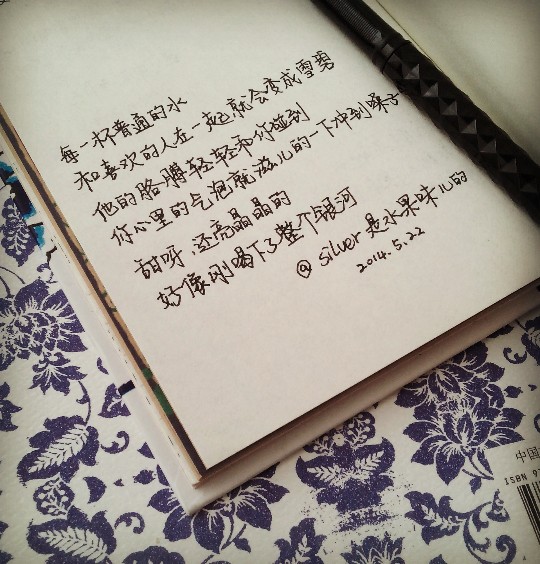 每一杯普通的水
和喜欢的人在一起就会变成雪碧
他的胳膊轻轻和你碰到
你心里的气泡就滋儿的一下冲到嗓子
甜呀，还亮晶晶的
好像刚喝下了整个银河
@ silver是水果味儿的
2014.5.22
中国
ISBN 97